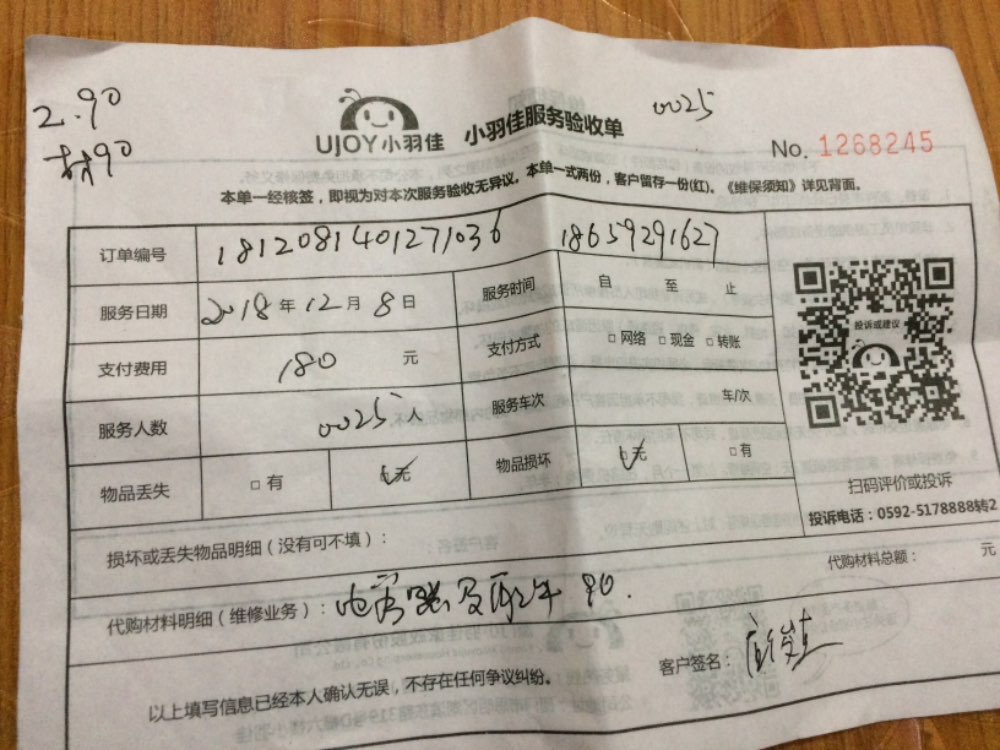 2.90
材90
UJOY小羽佳 小羽佳服务验收单
0025
No. 1268245
本单一经核签，即视为对本次服务验收无异议。本单一式两份，客户留存一份(红)。《维保须知》详见背面。
订单编号 1812081401271036 18659291627
服务日期 2018年12月8日 服务时间 自 至 止
支付费用 180 元 支付方式 □网络 □现金 □转账
服务人数 0025人 服务车次 车/次
物品丢失 □有 □无 物品损坏 □无 □有
投诉或建议
扫码评价或投诉
投诉电话：0592-5178888转2
损坏或丢失物品明细（没有可不填）：
代购材料总额： 元
代购材料明细（维修业务）： 90.
客户签名：
以上填写信息已经本人确认无误，不存在任何争议纠纷。